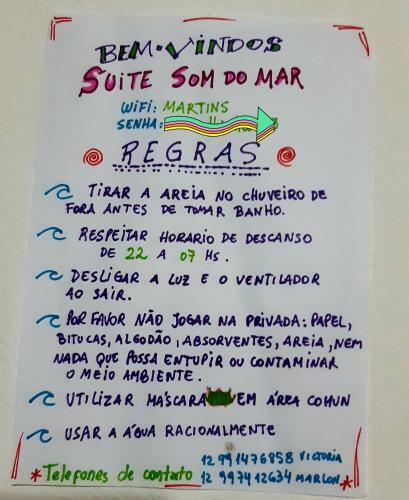 BEM-VINDOS
SUITE SOM DO MAR
WIFI: MARTINS
SENHA:
REGRAS
TIRAR A AREIA NO CHUVEIRO DE
FORA ANTES DE TOMAR BANHO.
RESPEITAR HORARIO DE DESCANSO
DE 22 A 07 HS.
DESLIGAR A LUZ E O VENTILADOR
AO SAIR.
POR FAVOR NÃO JOGAR NA PRIVADA: PAPEL,
BITUCAS, ALGODÃO, ABSORVENTES, AREIA, NEM
NADA QUE POSSA ENTUPIR OU CONTAMINAR
O MEIO AMBIENTE.
UTILIZAR MÁSCARA EM ÁREA COMUN
USAR A ÁGUA RACIONALMENTE
*Telefones de contato 12 991476858 VICTORIA
12 997412634 MARLON*